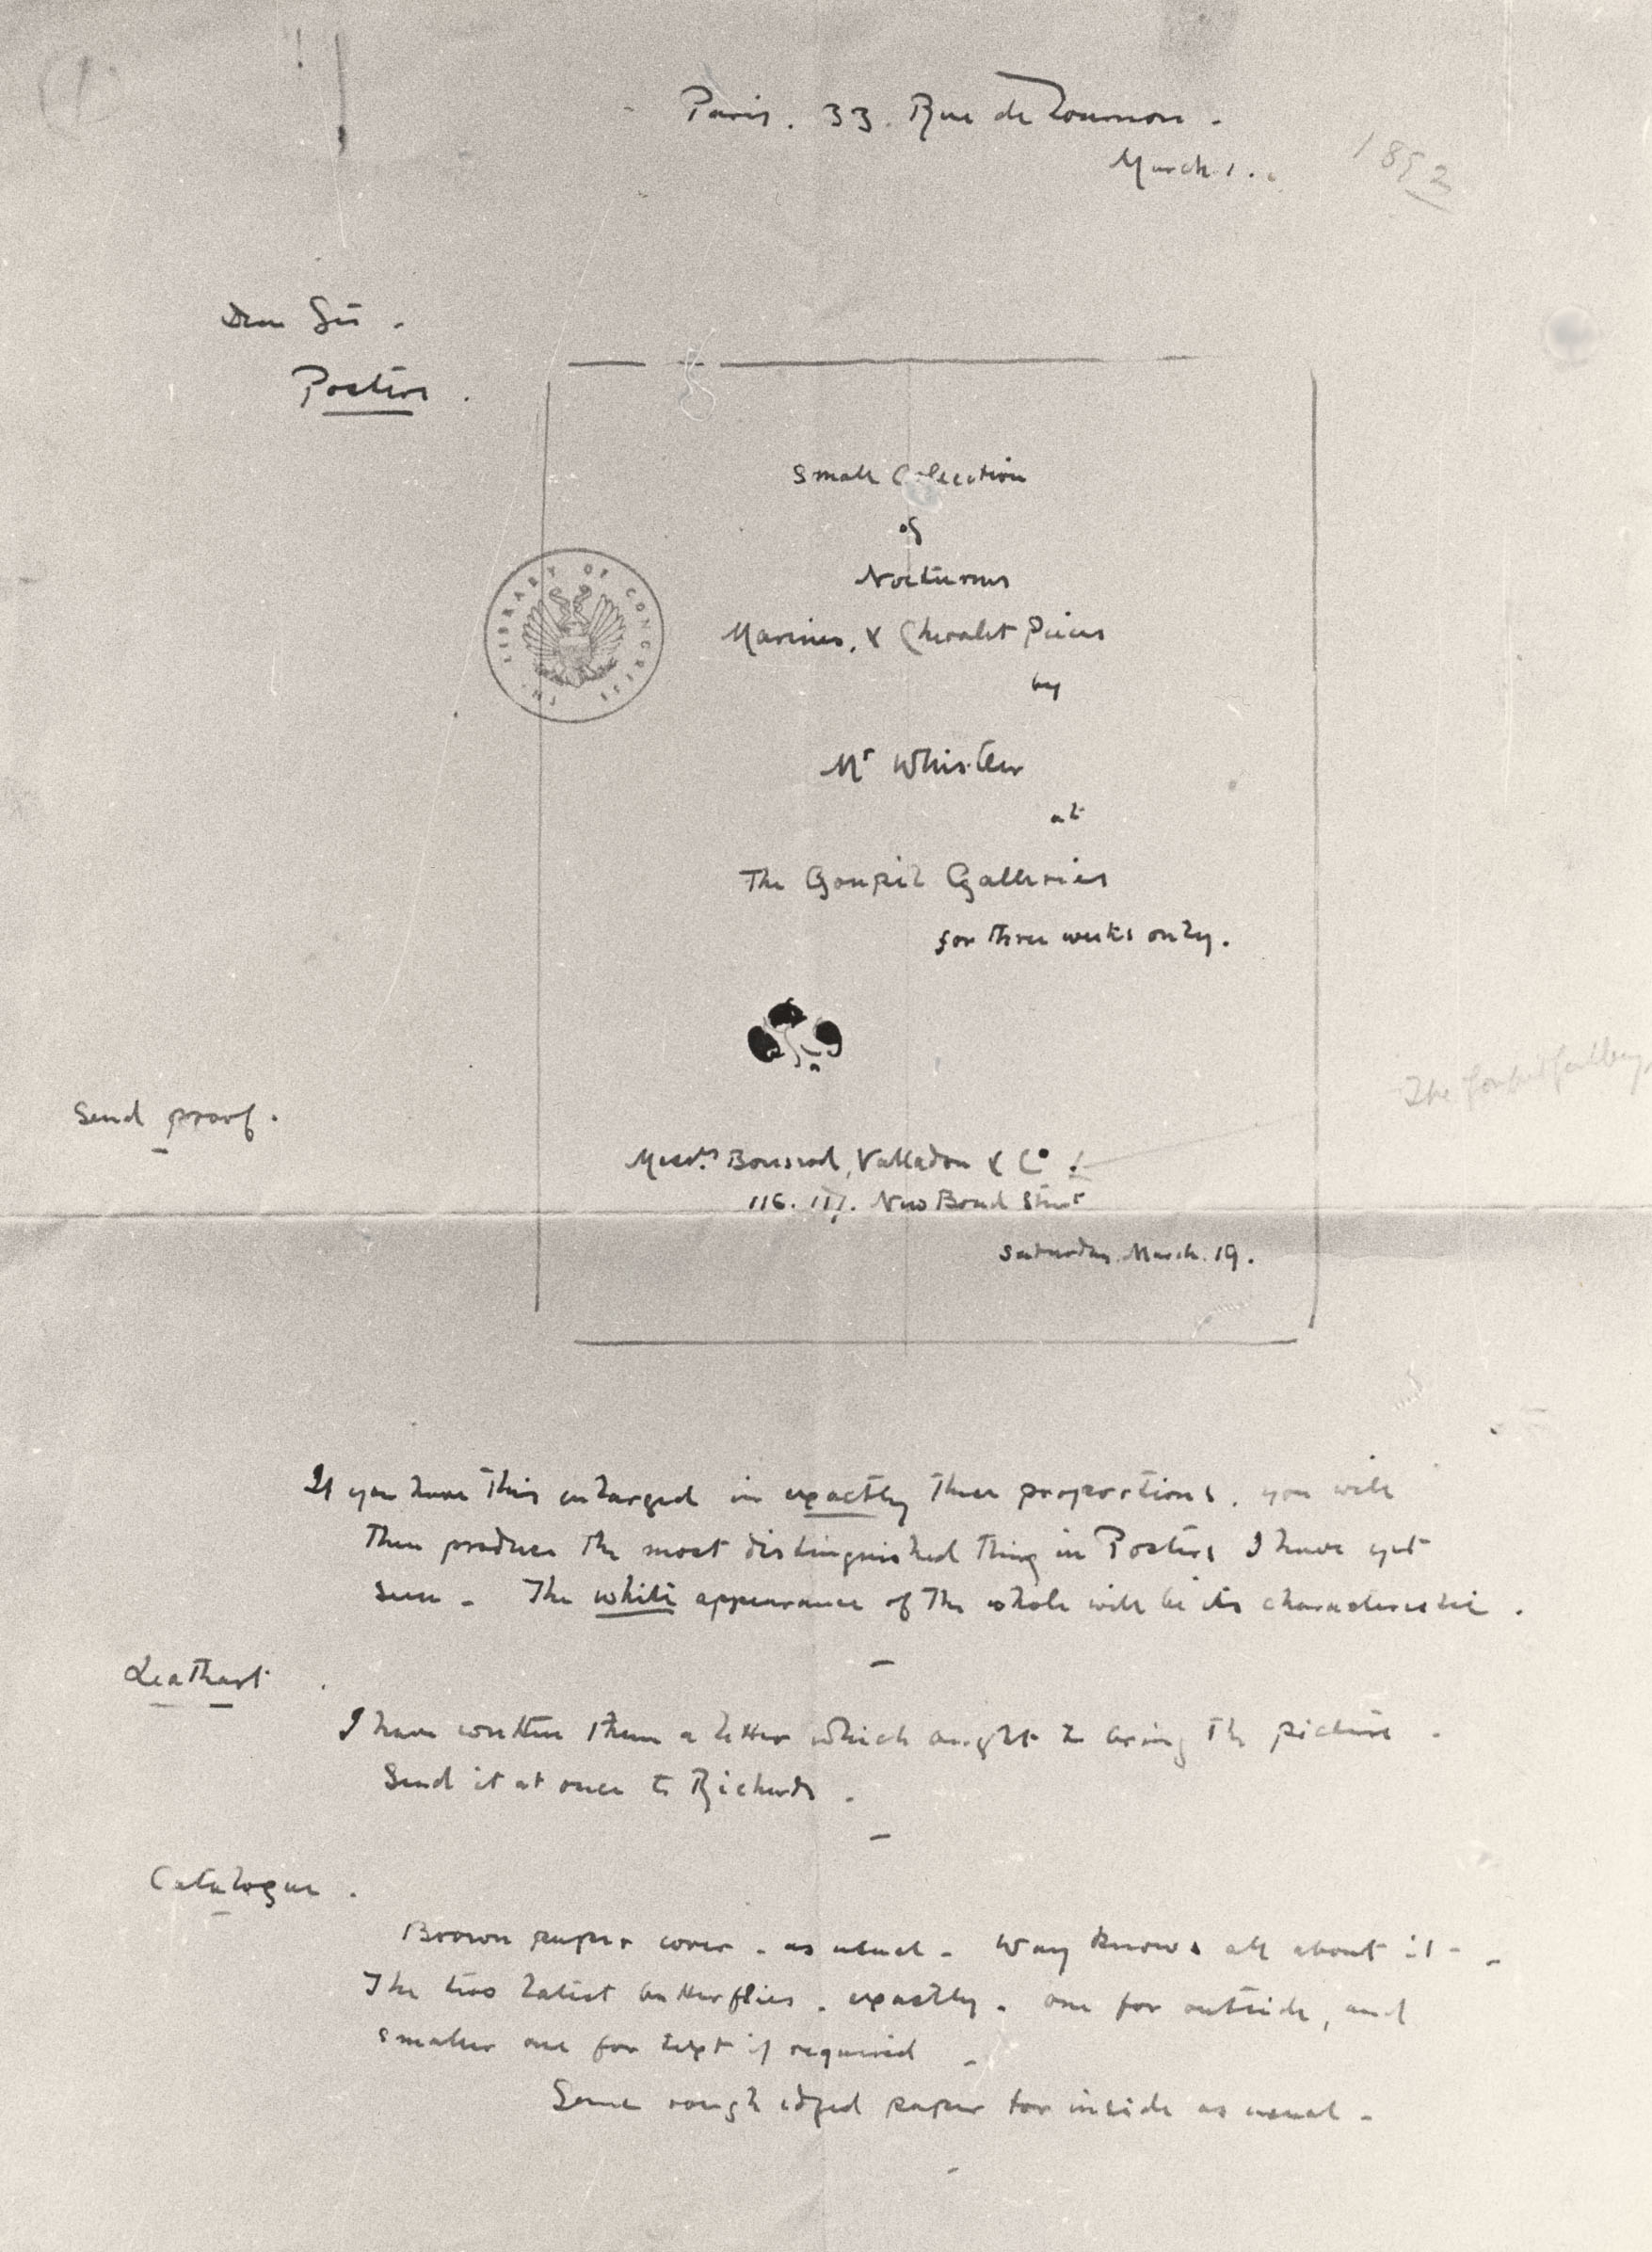 (1)
Paris. 33. Rue de Tournon.
March 1.
1892
Dear Sir.
Posters.
Small Collection
of
Nocturnes
Marines, & Chevalet Pieces
by
Mr Whistler
at
The Goupil Galleries
for three weeks only.
THE LIBRARY OF CONGRESS
Send proof.
The Goupil Gallery
Messrs Boussod, Valladon & Co.
116. 117. New Bond Street
Saturday. March. 19.
If you have this enlarged in exactly these proportions, you will
then produce the most distinguished thing in Posters I have yet
seen - The white appearance of the whole will be its characteristic.
Leathart.
I have written them a letter which ought to bring the picture.
Send it at once to Richards.
Catalogue.
Brown paper cover - as usual - Way knows all about it -
The two latest butterflies. exactly. one for outside, and
smaller one for text if required -
Same rough edged paper for inside as usual -